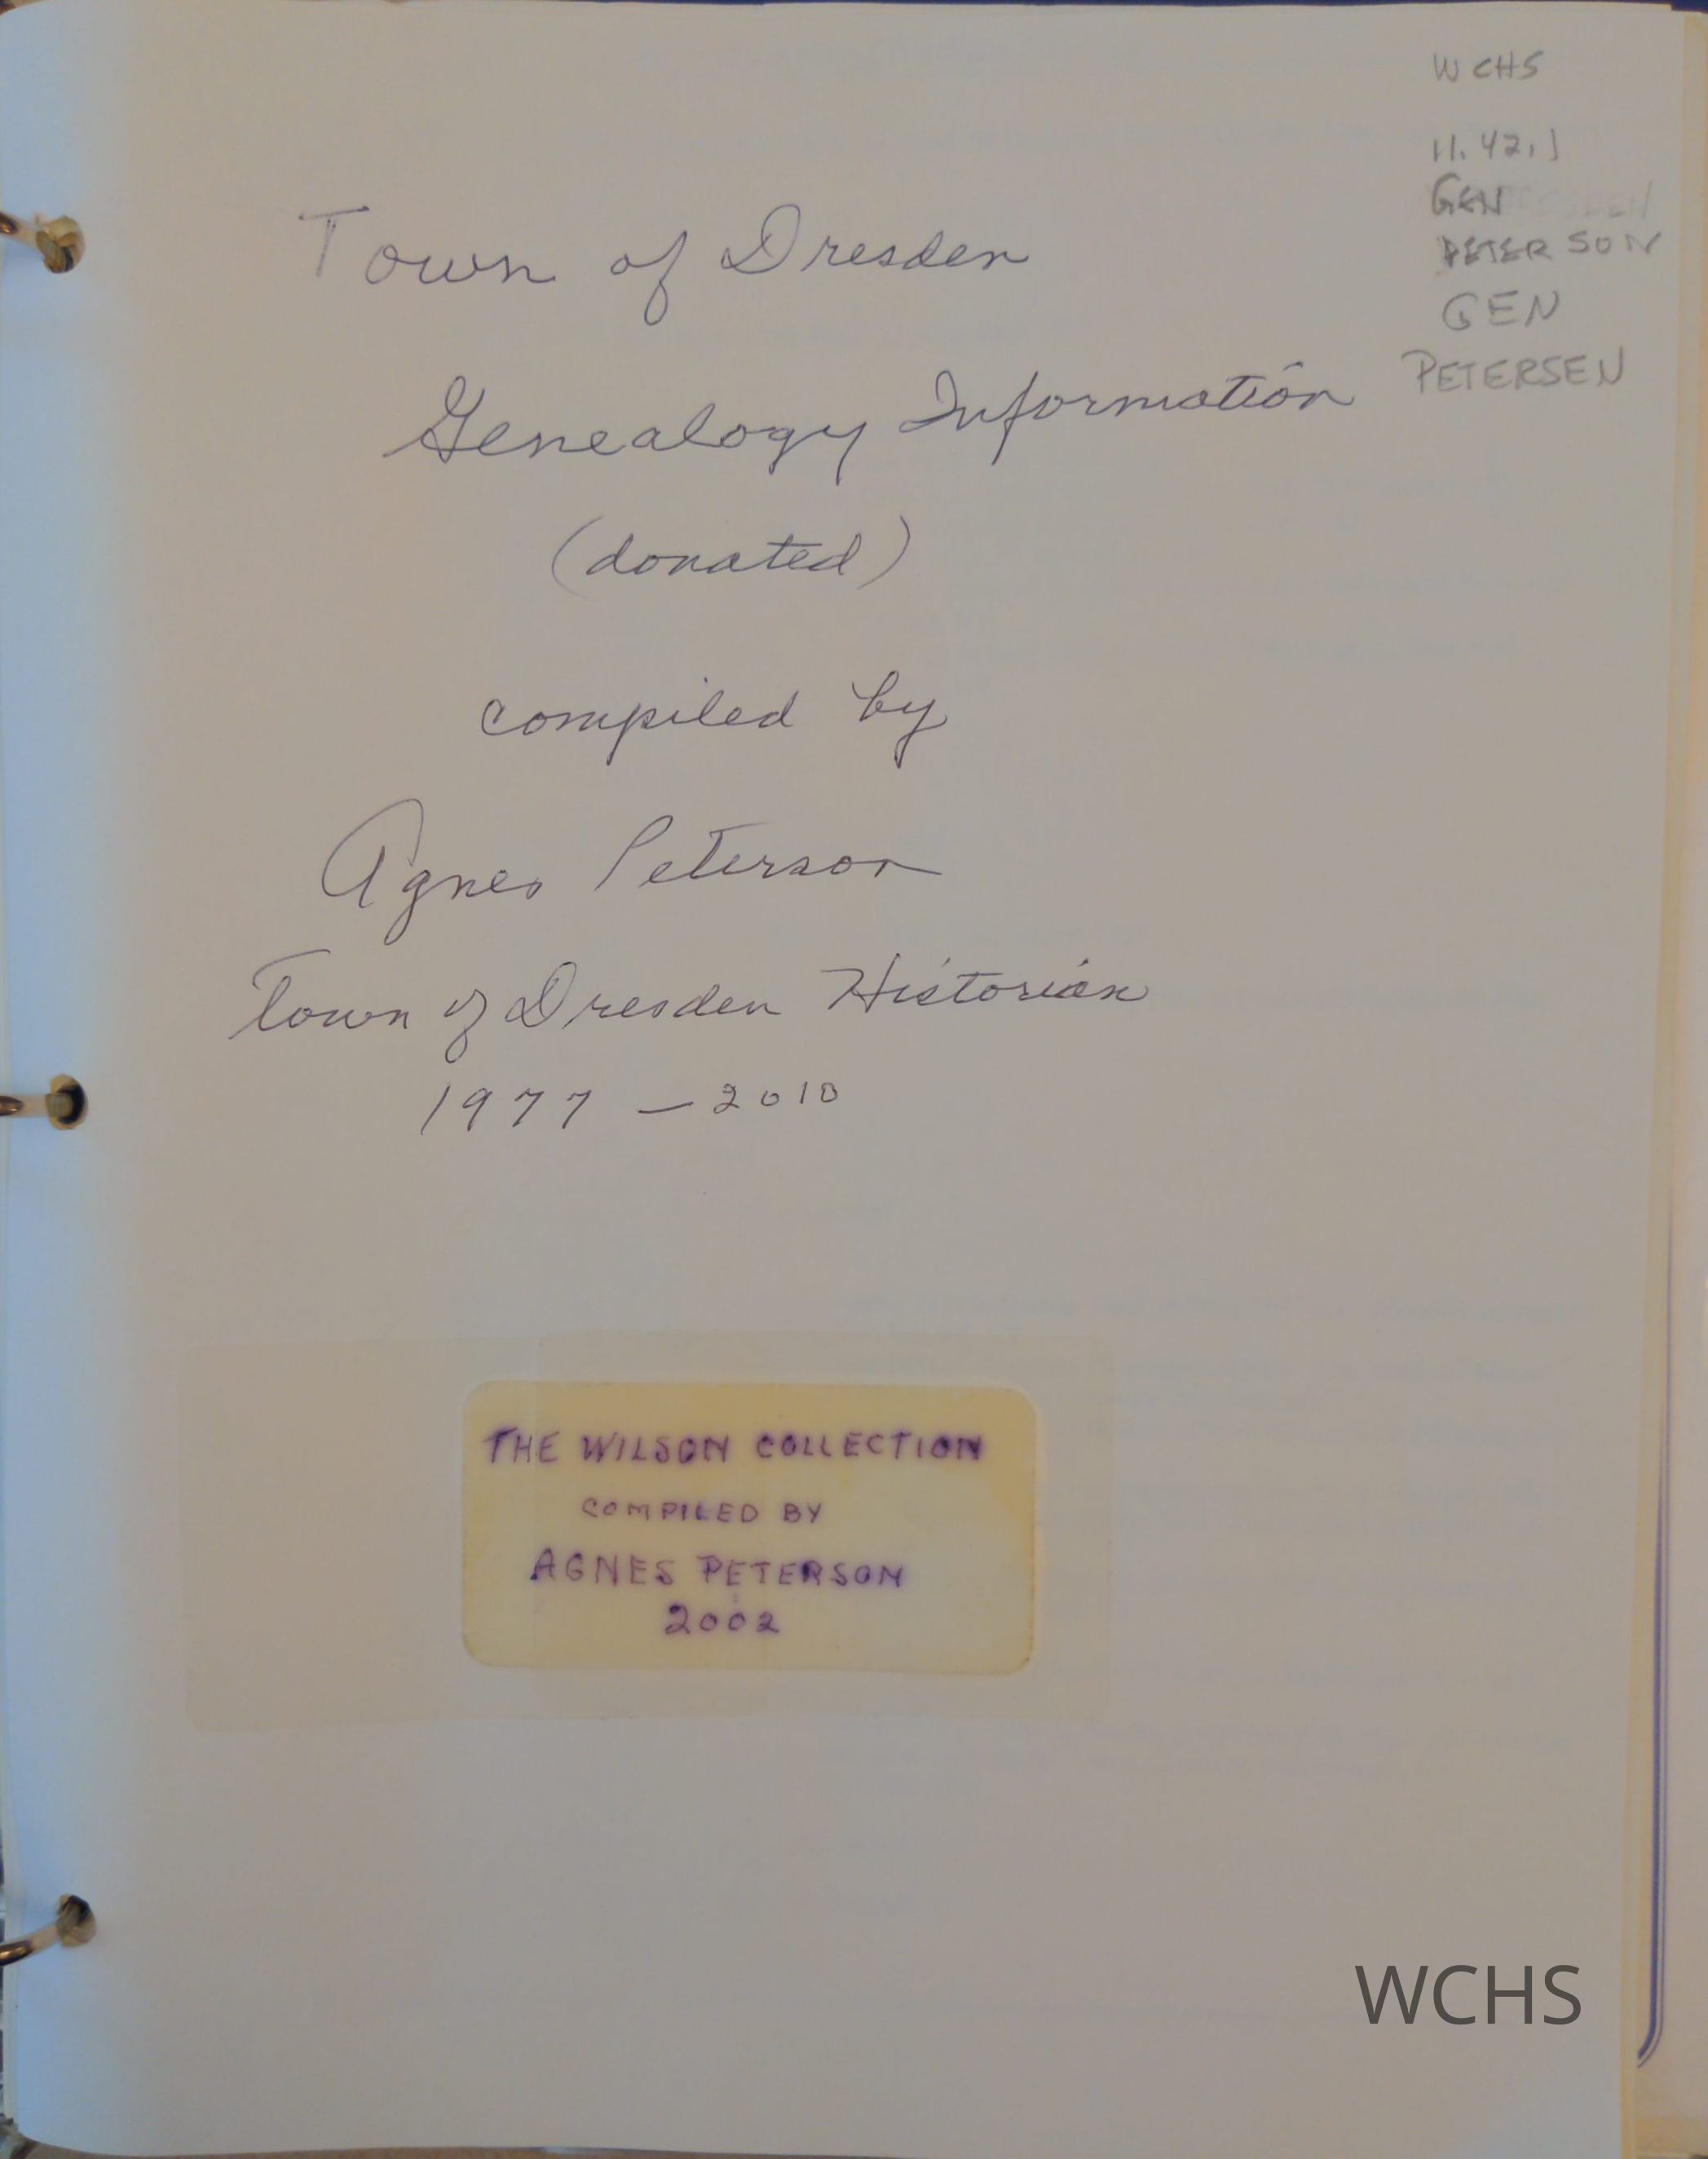 WCHS
11.42.1
GEN
PETERSON
GEN
PETERSEN
Town of Dresden
Genealogy Information
(donated)
compiled by
Agnes Peterson
Town of Dresden Historian
1977 - 2010
THE WILSON COLLECTION
COMPILED BY
AGNES PETERSON
2002
WCHS